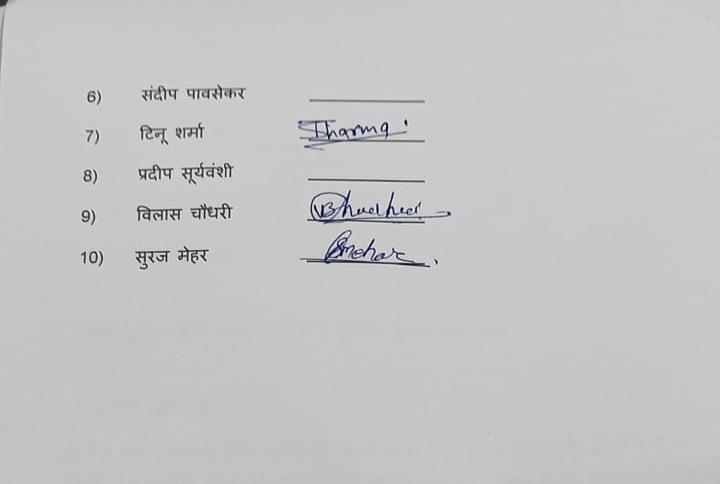 6) संदीप पावसेकर
7) टिनू शर्मा Tharma
8) प्रदीप सूर्यवंशी
9) विलास चौधरी
10) सुरज मेहर Smehar